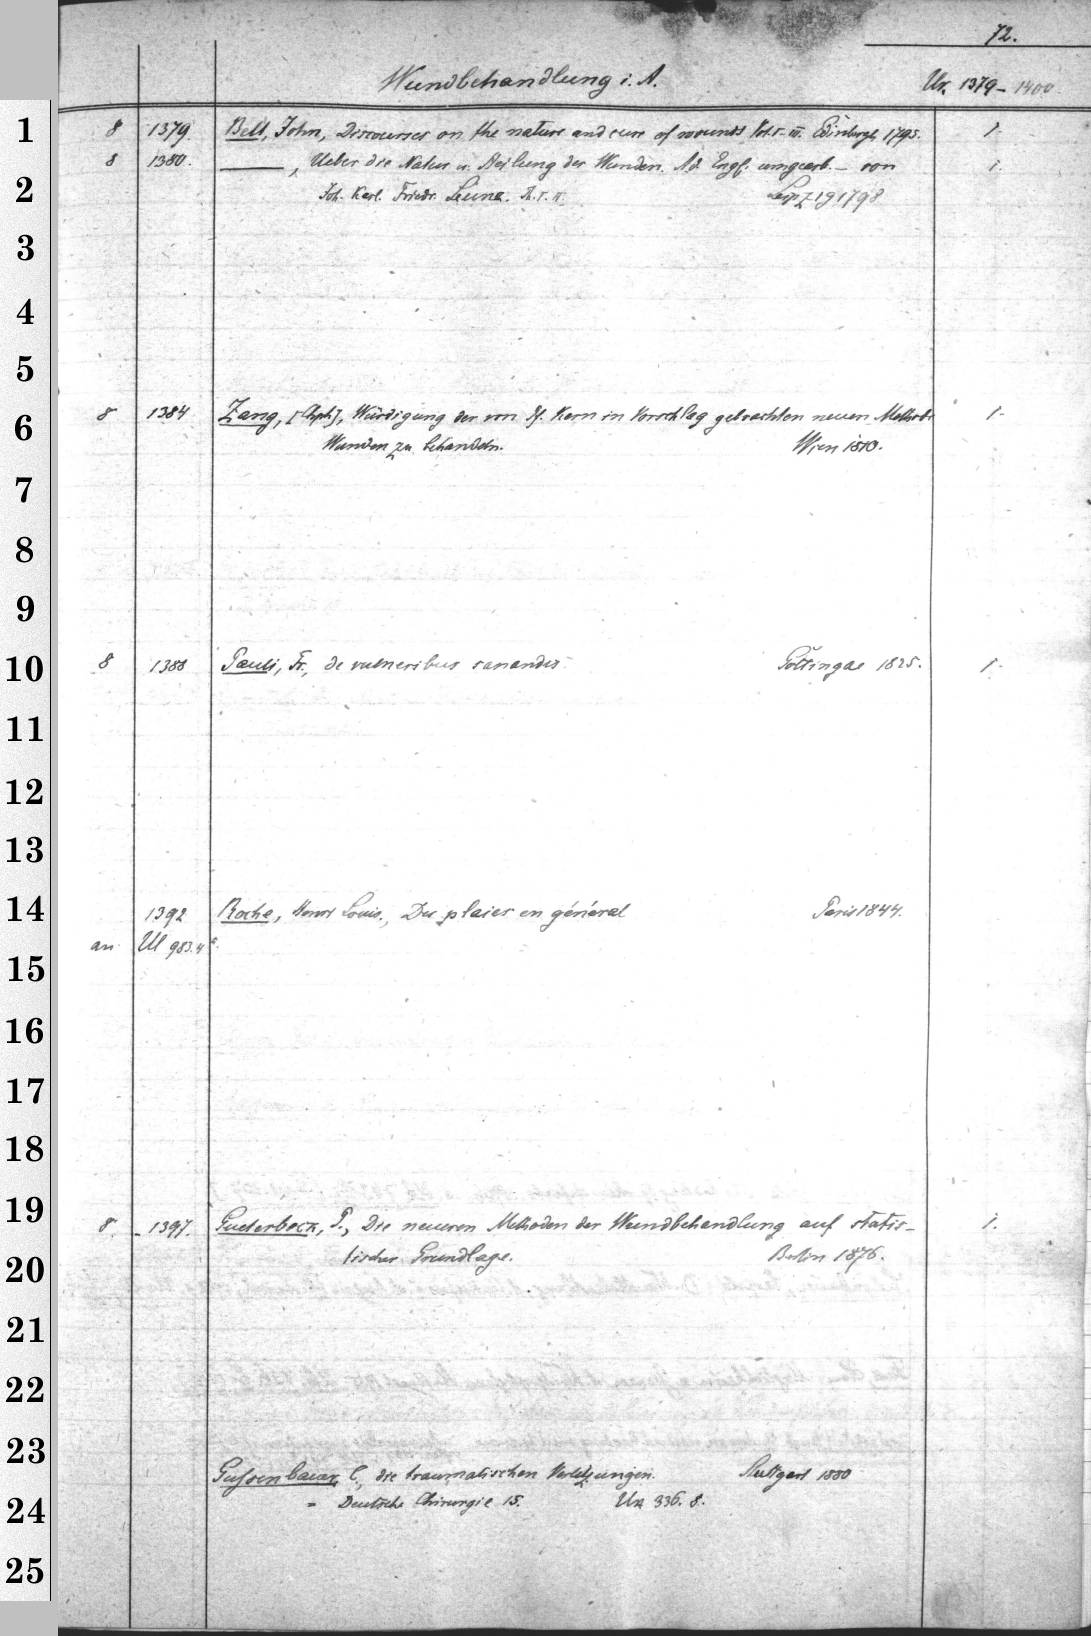 72.
Wundbehandlung i. A.
Ur. 1379-1400
1
8 1379. Bell, John, Discourses on the nature and cure of wounds Vol. I-III. Edinburgh 1795. 1.
8 1380. ———, Ueber die Natur u. Heilung der Wunden. A. d. Engl. umgearb. — von 1.
2
Joh. Karl. Friedr. Leune. Th. I. II. Leipzig 1798
3
4
5
6
8 1384 Zang, [Chph], Würdigung der von H. Kern in Vorschlag gebrachten neuen Methode 1.
Wunden zu behandeln. Wien 1810.
7
8
9
10
8 1388 Pauli, Fr., de vulneribus sanandis. Göttingae 1825. 1.
11
12
13
14
1392 Roche, Louis., Des plaies en général Paris 1844.
an Ul 983.4°.
15
16
17
18
19
8. 1397. Gueterbock, P., Die neueren Methoden der Wundbehandlung auf statis- 1.
tischer Grundlage. Berlin 1876.
20
21
22
23
Gussenbauer, C, die traumatischen Verletzungen. Stuttgart 1880
24
= Deutsche Chirurgie 15. 336. 8.
25